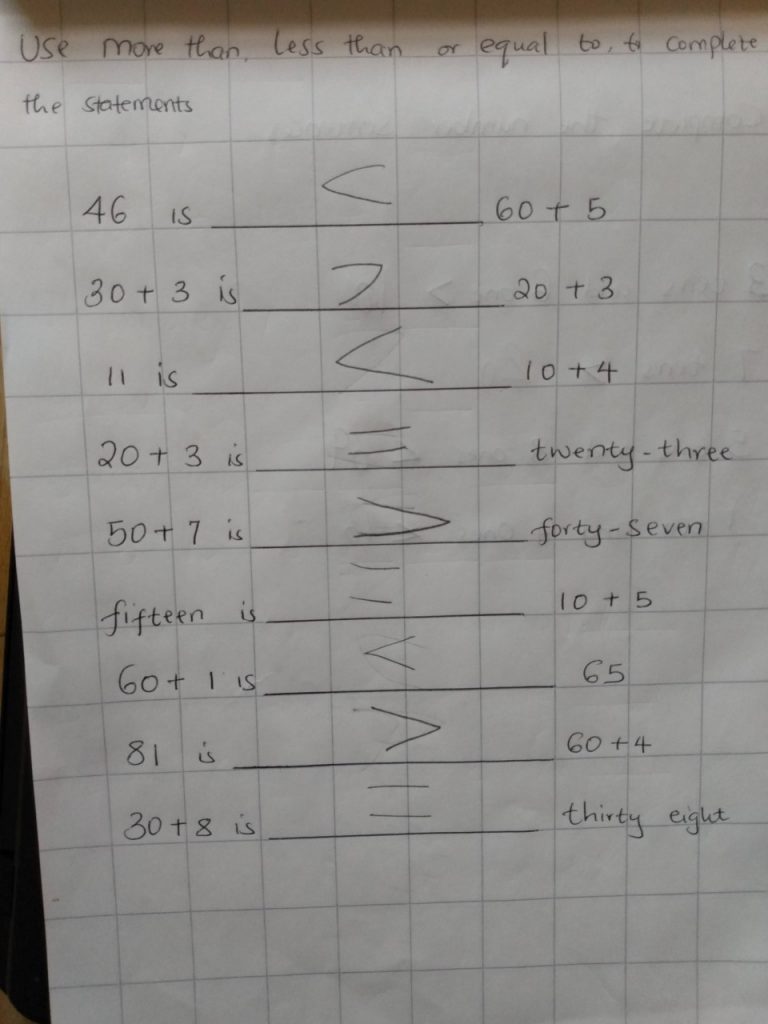 Use more than, less than or equal to, to complete
the statements
46 is < 60 + 5
30 + 3 is > 20 + 3
11 is < 10 + 4
20 + 3 is = twenty-three
50 + 7 is > forty-seven
fifteen is = 10 + 5
60 + 1 is < 65
81 is > 60 + 4
30 + 8 is = thirty eight